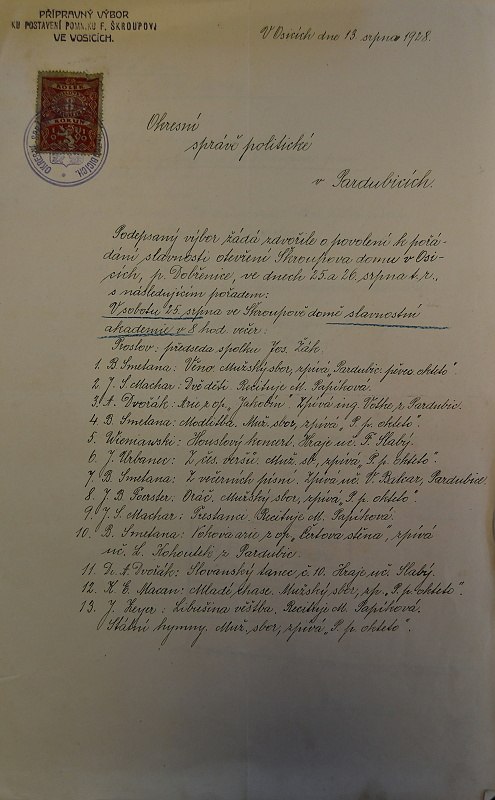 PŘÍPRAVNÝ VÝBOR
KU POSTAVENÍ POMNÍKU F. ŠKROUPOVI
VE VOSICÍCH.
V Osicích dne 13. srpna 1928.
8
KORUN
Okresní
správě politické
v Pardubicích.
Podepsaný výbor žádá zdvořile o povolení k pořá-
dání slavnosti otevření Škroupova domu v Osi-
cích, p. Dobřenice, ve dnech 25. a 26. srpna t. r.,
s následujícím pořadem:
V sobotu 25. srpna ve Škroupově domě slavnostní
akademie v 8 hod. večer:
Proslov: předseda spolku Jos. Žák.
1. B. Smetana: Věno. Mužský sbor, zpívá „Pardubic. pěvec. okteto".
2. J. S. Machar: Dvě děti. Recituje M. Papíková.
3. A. Dvořák: Arie z op. „Jakobín". Zpívá ing. Vothe, z Pardubic.
4. B. Smetana: Modlitba. Muž. sbor, zpívá „P. p. okteto".
5. Wieniawski: Houslový koncert. Hraje uč. F. Slabý.
6. J. Urbanec: Z čes. veršů. Muž. sb., zpívá „P. p. okteto".
7. B. Smetana: Z večerních písní. Zpívá uč. V. Balcar, Pardubice.
8. J. B. Foerster: Oráč. Mužský sbor, zpívá „P. p. okteto".
9. J. S. Machar: Trestanci. Recituje M. Papíková.
10. B. Smetana: Vokova arie z op. „Čertova stěna", zpívá
uč. L. Kohoutek z Pardubic.
11. Dr. A. Dvořák: Slovanský tanec, č. 10. Hraje uč. Slabý.
12. K. E. Macan: Mladé chase. Mužský sbor, zp. „P. p. okteto".
13. J. Heyer: Libušina věštba. Recituje M. Papíková.
Státní hymny. Muž. sbor, zpívá „P. p. okteto".